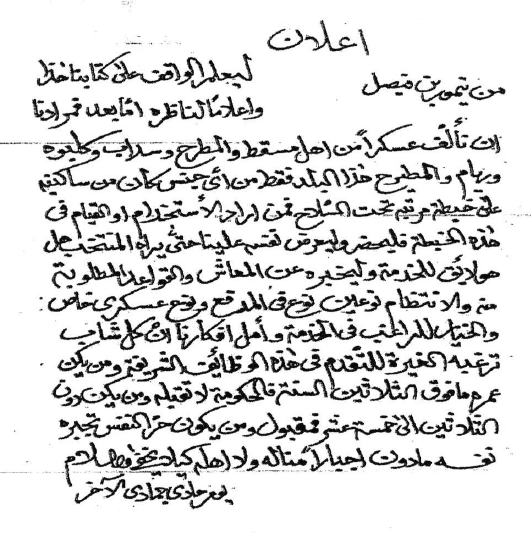 اعلان
من تيمور بن فيصل
ليعلم الواقف على كتابنا هذا
واعلاماً لناظره امّا بعد فمرادنا
ان تألّف عسكراً من اهل مسقط والمطرح وسداب وكلبوه
وريام والمطيرح هذا البلد فقط من اىّ جنس كان من ساكنيه
على خبطة مرتبه تحت السلاح فمن اراد الأستخدام او القيام فى
هذه الخبطة فليحضر وليعرض نفسه علينا حتى يراه المنتخب هل
هو لائق للخدمة وليخبره عن المعاش والقواعد المطلوبة
منه والانتظام نوعين نوع فى المدفع ونوع عسكرى خاص:
والخيار للراغب فى الخدمة وأمل افكارنا انّ كل شاب
ترغبه الغيرة للتقدم فى هذه الوظائف الشريفة ومن يكن
عمره ما فوق الثلاثين السنة فالحكومة لا تقبله ومن يكن دون
الثلاثين الى خمسة عشر فمقبول ومن يكون حرّ النفس تجبره
نفسه مادون اجباراً مناله ولا اهله والسلام
يوم حادى جمادى الآخر